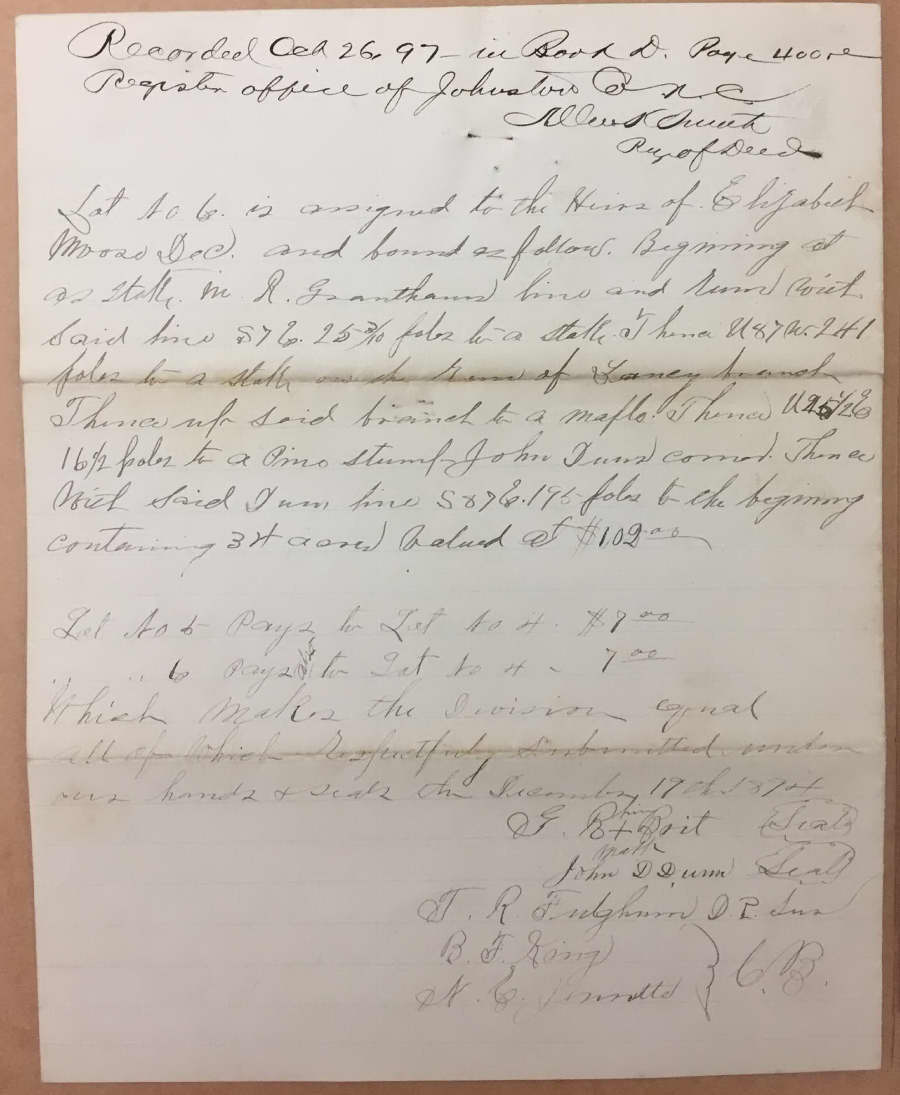 Recorded Oct 26, 97 - in Book D. Page 400
Register office of Johnston Co N.C.
Smith
Reg of Deeds
Lot No 6. is assigned to the Heirs of Elizabeth
Moose Decd. and bound as follow. Begining at
as stake. M. R. Granthams line and runs with
said line S 7 E. 25 3/10 poles to a stake. Thence N 87 W. 241
poles to a stake on the Run of branch
Thence up said branch to a maple. Thence N 25 1/2 E
16 1/2 poles to a Pine stump John Dunns corner. Thence
With said Dunn line S 87 E. 195 poles to the begining
containing 34 acres Valued at $102.00
Lot No 5 Pays to Lot No 4. $7.00
" " 6 Pays also to Lot No 4 - 7.00
Which makes the Division equal
all of Which Respectfuly Submitted under
our hands & seals the December 19th 1894
G. B his + mark Brit (Seal)
John D Dunn (Seal)
T. R. Fulghum D. P. Sur
B. F. King } C.B.
N. E.